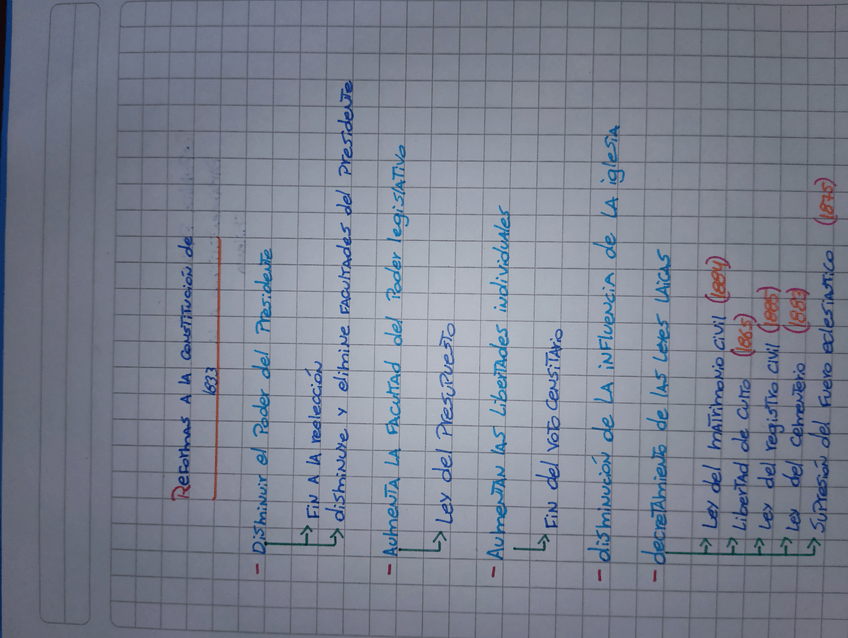 Reformas A la constitución de
1833
- Disminuir el Poder del Presidente
→ Fin A la reelección
→ disminuye y elimine facultades del Presidente
- Aumenta la Facultad del Poder legislativo
→ Ley del Presupuesto
- Aumentan las Libertades individuales
→ Fin del voto censitario
- disminución de la influencia de la iglesia
- decretamiento de las leyes laicas
→ Ley del matrimonio civil (1884)
→ libertad de culto (1865)
→ Ley del registro civil (1885)
→ Ley del cementerio (1883)
→ Supresion del Fuero eclesiastico (1875)